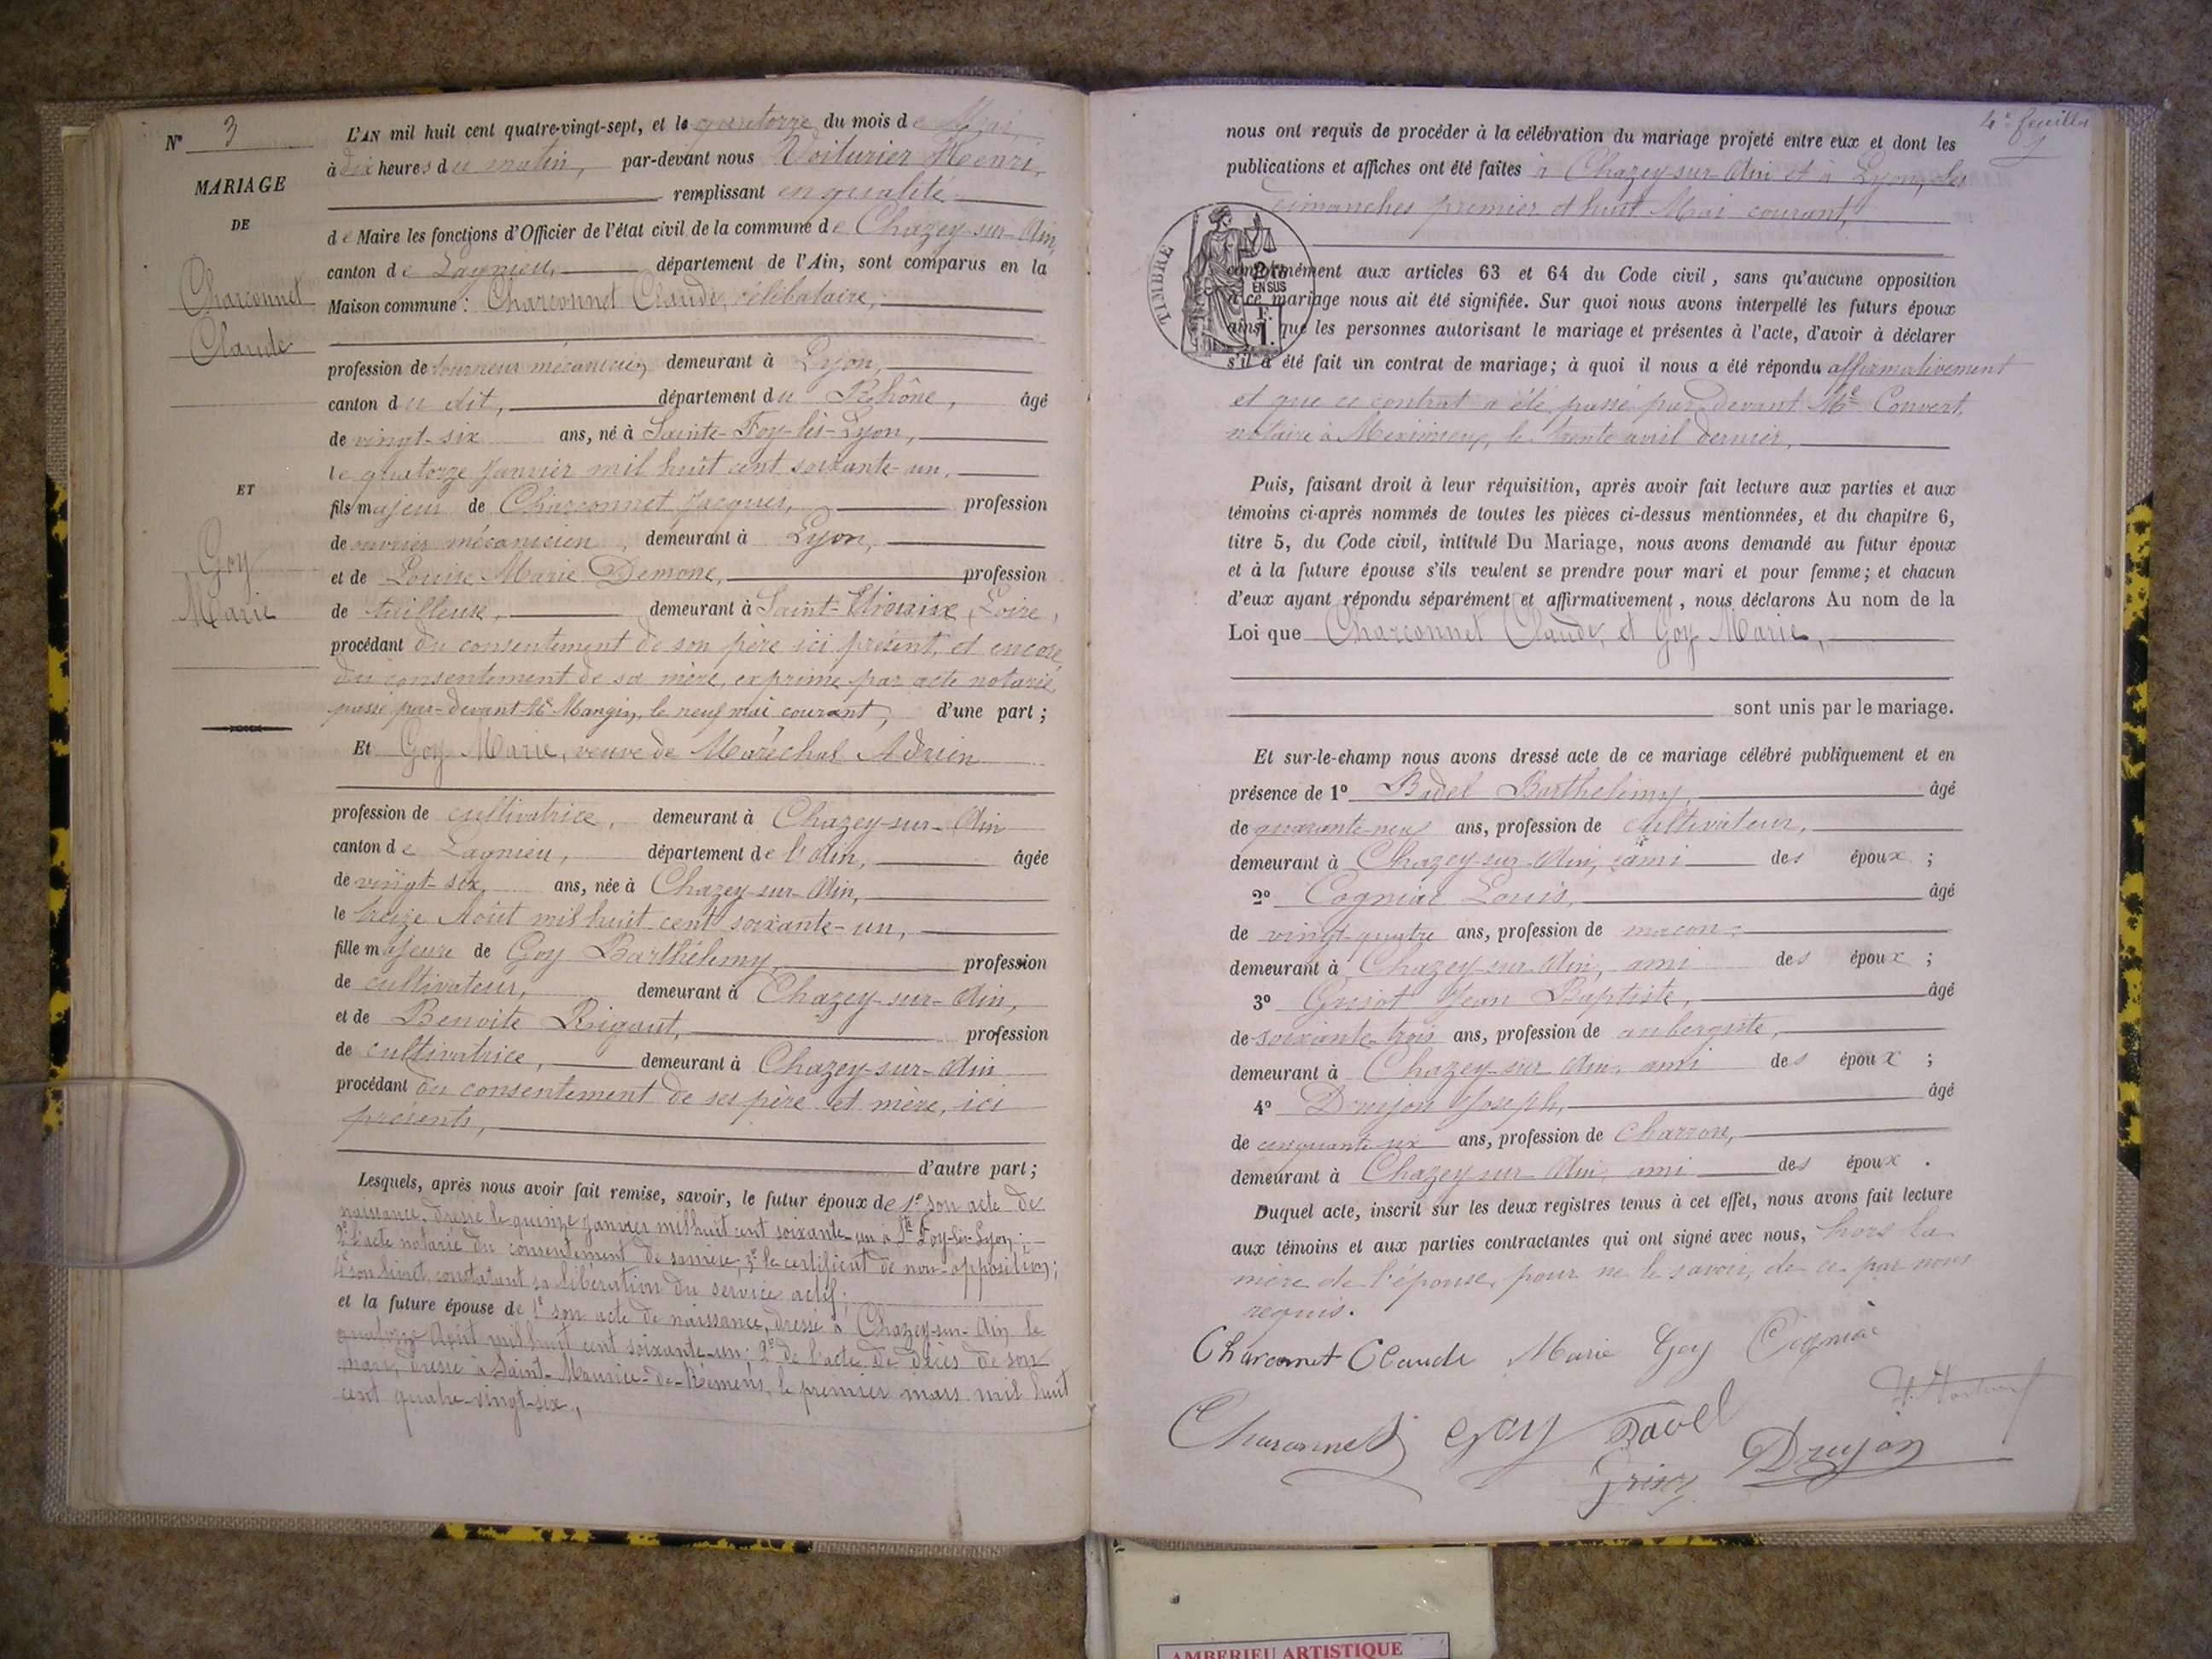 N° 3
MARIAGE
DE
Charconnet
Claude
ET
Goy
Marie
L'AN mil huit cent quatre-vingt-sept, et le quatorze du mois de Mai,
à dix heures du matin, par-devant nous Voiturier Henri,
remplissant en qualité
de Maire les fonctions d'Officier de l'état civil de la commune de Chazey-sur-Ain,
canton de Lagnieu, département de l'Ain, sont comparus en la
Maison commune : Charconnet Claude, célibataire,
profession de tourneur mécanicien, demeurant à Lyon,
canton du dit, département du Rhône, âgé
de vingt-six ans, né à Sainte-Foy-lès-Lyon,
le quatorze Janvier mil huit cent soixante-un,
fils majeur de Charconnet Jacques, profession
de ouvrier mécanicien, demeurant à Lyon,
et de Louise Marie Demone, profession
de tailleuse, demeurant à Saint-Etienne, Loire,
procédant du consentement de son père ici présent, et encore
du consentement de sa mère, exprimé par acte notarié,
passé par-devant Me Mangin, le neuf mai courant, d'une part ;
Et Goy Marie, veuve de Maréchal Adrien
profession de cultivatrice, demeurant à Chazey-sur-Ain
canton de Lagnieu, département de l'Ain, âgée
de vingt-six, ans, née à Chazey-sur-Ain,
le treize Août mil huit cent soixante-un,
fille majeure de Goy Barthélemy, profession
de cultivateur, demeurant à Chazey-sur-Ain,
et de Benoite Rigaut, profession
de cultivatrice, demeurant à Chazey-sur-Ain
procédant du consentement de ses père et mère, ici
présents,
d'autre part ;
Lesquels, après nous avoir fait remise, savoir, le futur époux de 1° son acte de
naissance, dressé le quinze janvier mil huit cent soixante-un à Ste Foy-lès-Lyon ;
2° l'acte notarié du consentement de sa mère ; 3° le certificat de non-opposition ;
4° son livret, constatant sa libération du service actif ;
et la future épouse de 1° son acte de naissance, dressé à Chazey-sur-Ain le
quatorze Août mil huit cent soixante-un ; 2° de l'acte de décès de son
mari, dressé à Saint-Maurice-de-Rémens, le premier mars mil huit
cent quatre-vingt-six,
4e feuillet
nous ont requis de procéder à la célébration du mariage projeté entre eux et dont les
publications et affiches ont été faites à Chazey-sur-Ain et à Lyon, les
dimanches premier et huit Mai courant,
TIMBRE
EN SUS
conformément aux articles 63 et 64 du Code civil, sans qu'aucune opposition
à ce mariage nous ait été signifiée. Sur quoi nous avons interpellé les futurs époux
ainsi que les personnes autorisant le mariage et présentes à l'acte, d'avoir à déclarer
s'il a été fait un contrat de mariage ; à quoi il nous a été répondu affirmativement
et que ce contrat a été passé par-devant Me Convert,
notaire à Meximieux, le trente avril dernier,
Puis, faisant droit à leur réquisition, après avoir fait lecture aux parties et aux
témoins ci-après nommés de toutes les pièces ci-dessus mentionnées, et du chapitre 6,
titre 5, du Code civil, intitulé Du Mariage, nous avons demandé au futur époux
et à la future épouse s'ils veulent se prendre pour mari et pour femme ; et chacun
d'eux ayant répondu séparément et affirmativement, nous déclarons Au nom de la
Loi que Charconnet Claude, et Goy Marie,
sont unis par le mariage.
Et sur-le-champ nous avons dressé acte de ce mariage célébré publiquement et en
présence de 1° Badel Barthélemy, âgé
de quarante-neuf ans, profession de cultivateur,
demeurant à Chazey-sur-Ain, ami des époux ;
2° Cogniat Louis, âgé
de vingt-quatre ans, profession de maçon,
demeurant à Chazey-sur-Ain, ami des époux ;
3° Jean Baptiste, âgé
de soixante-trois ans, profession de aubergiste,
demeurant à Chazey-sur-Ain, ami des époux ;
4° Drujon Joseph, âgé
de cinquante-six ans, profession de Charron,
demeurant à Chazey-sur-Ain, ami des époux.
Duquel acte, inscrit sur les deux registres tenus à cet effet, nous avons fait lecture
aux témoins et aux parties contractantes qui ont signé avec nous, hors la
mère de l'épouse, pour ne le savoir, de ce par nous
requis.
Charconnet Claude Marie Goy Cogniat
Charconnet Goy Badel Drujon
AMBERIEU ARTISTIQUE